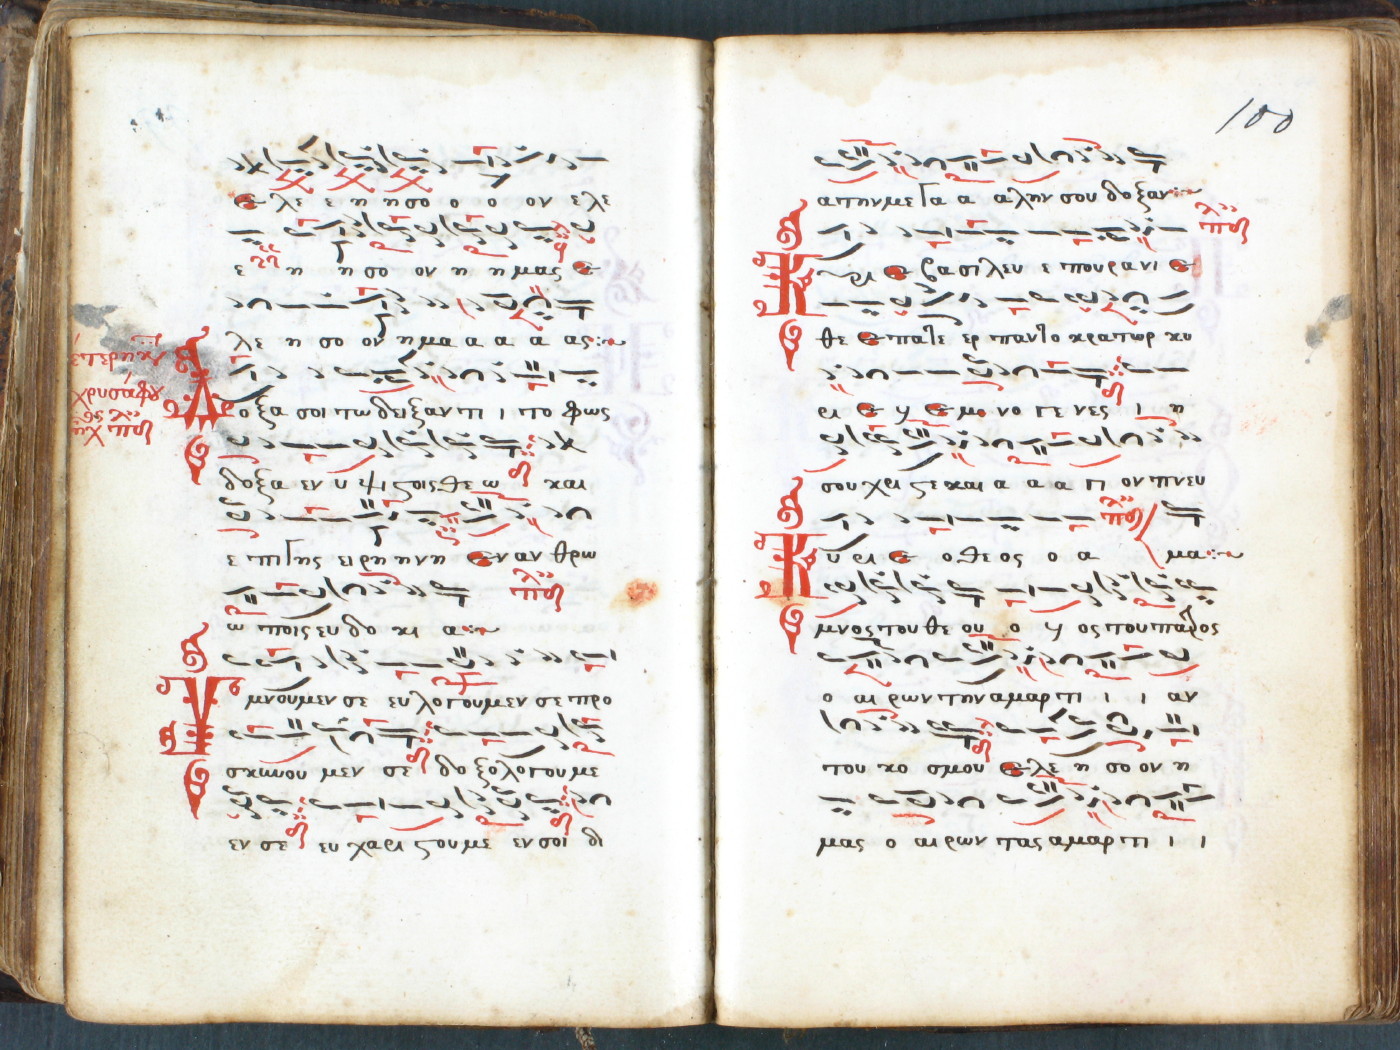 ε λε ε η η σο ο ο ον ε λε
ε η η σο ον η η μας ε
λε η σο ον η μα α α α ας
Δοξα σοι τω δειξαντι ι το φως
δοξα εν υ ψι ϛοις θε ω και
ε πι γης ει ρη η νη εν αν θρω
ω ποις ευ δο κι α
Υμνουμεν σε ευ λογουμεν σε προ
σκυνου μεν σε δο ξολογου με
εν σε ευ χαρι ϛου με εν σοι δι
100
α την με γα α α λην σου δοξαν
Κυρι ε βασιλευ ε πουρανι ε
θε ε πατε ερ παντο κρατωρ κυ
ρι ε υ ε μο νο γε νες ι η
σου χρι ϛε και α α α γι ον πνευ
μα
Κυ ρι ε ο θεος ο α
μνος του θε ου ο υ ος του πατρος
ο αι ρων την αμαρτι ι ι αν
του κο σμου ε λε η σο ον η
μας ο αι ρων τας αμαρτι ι ι